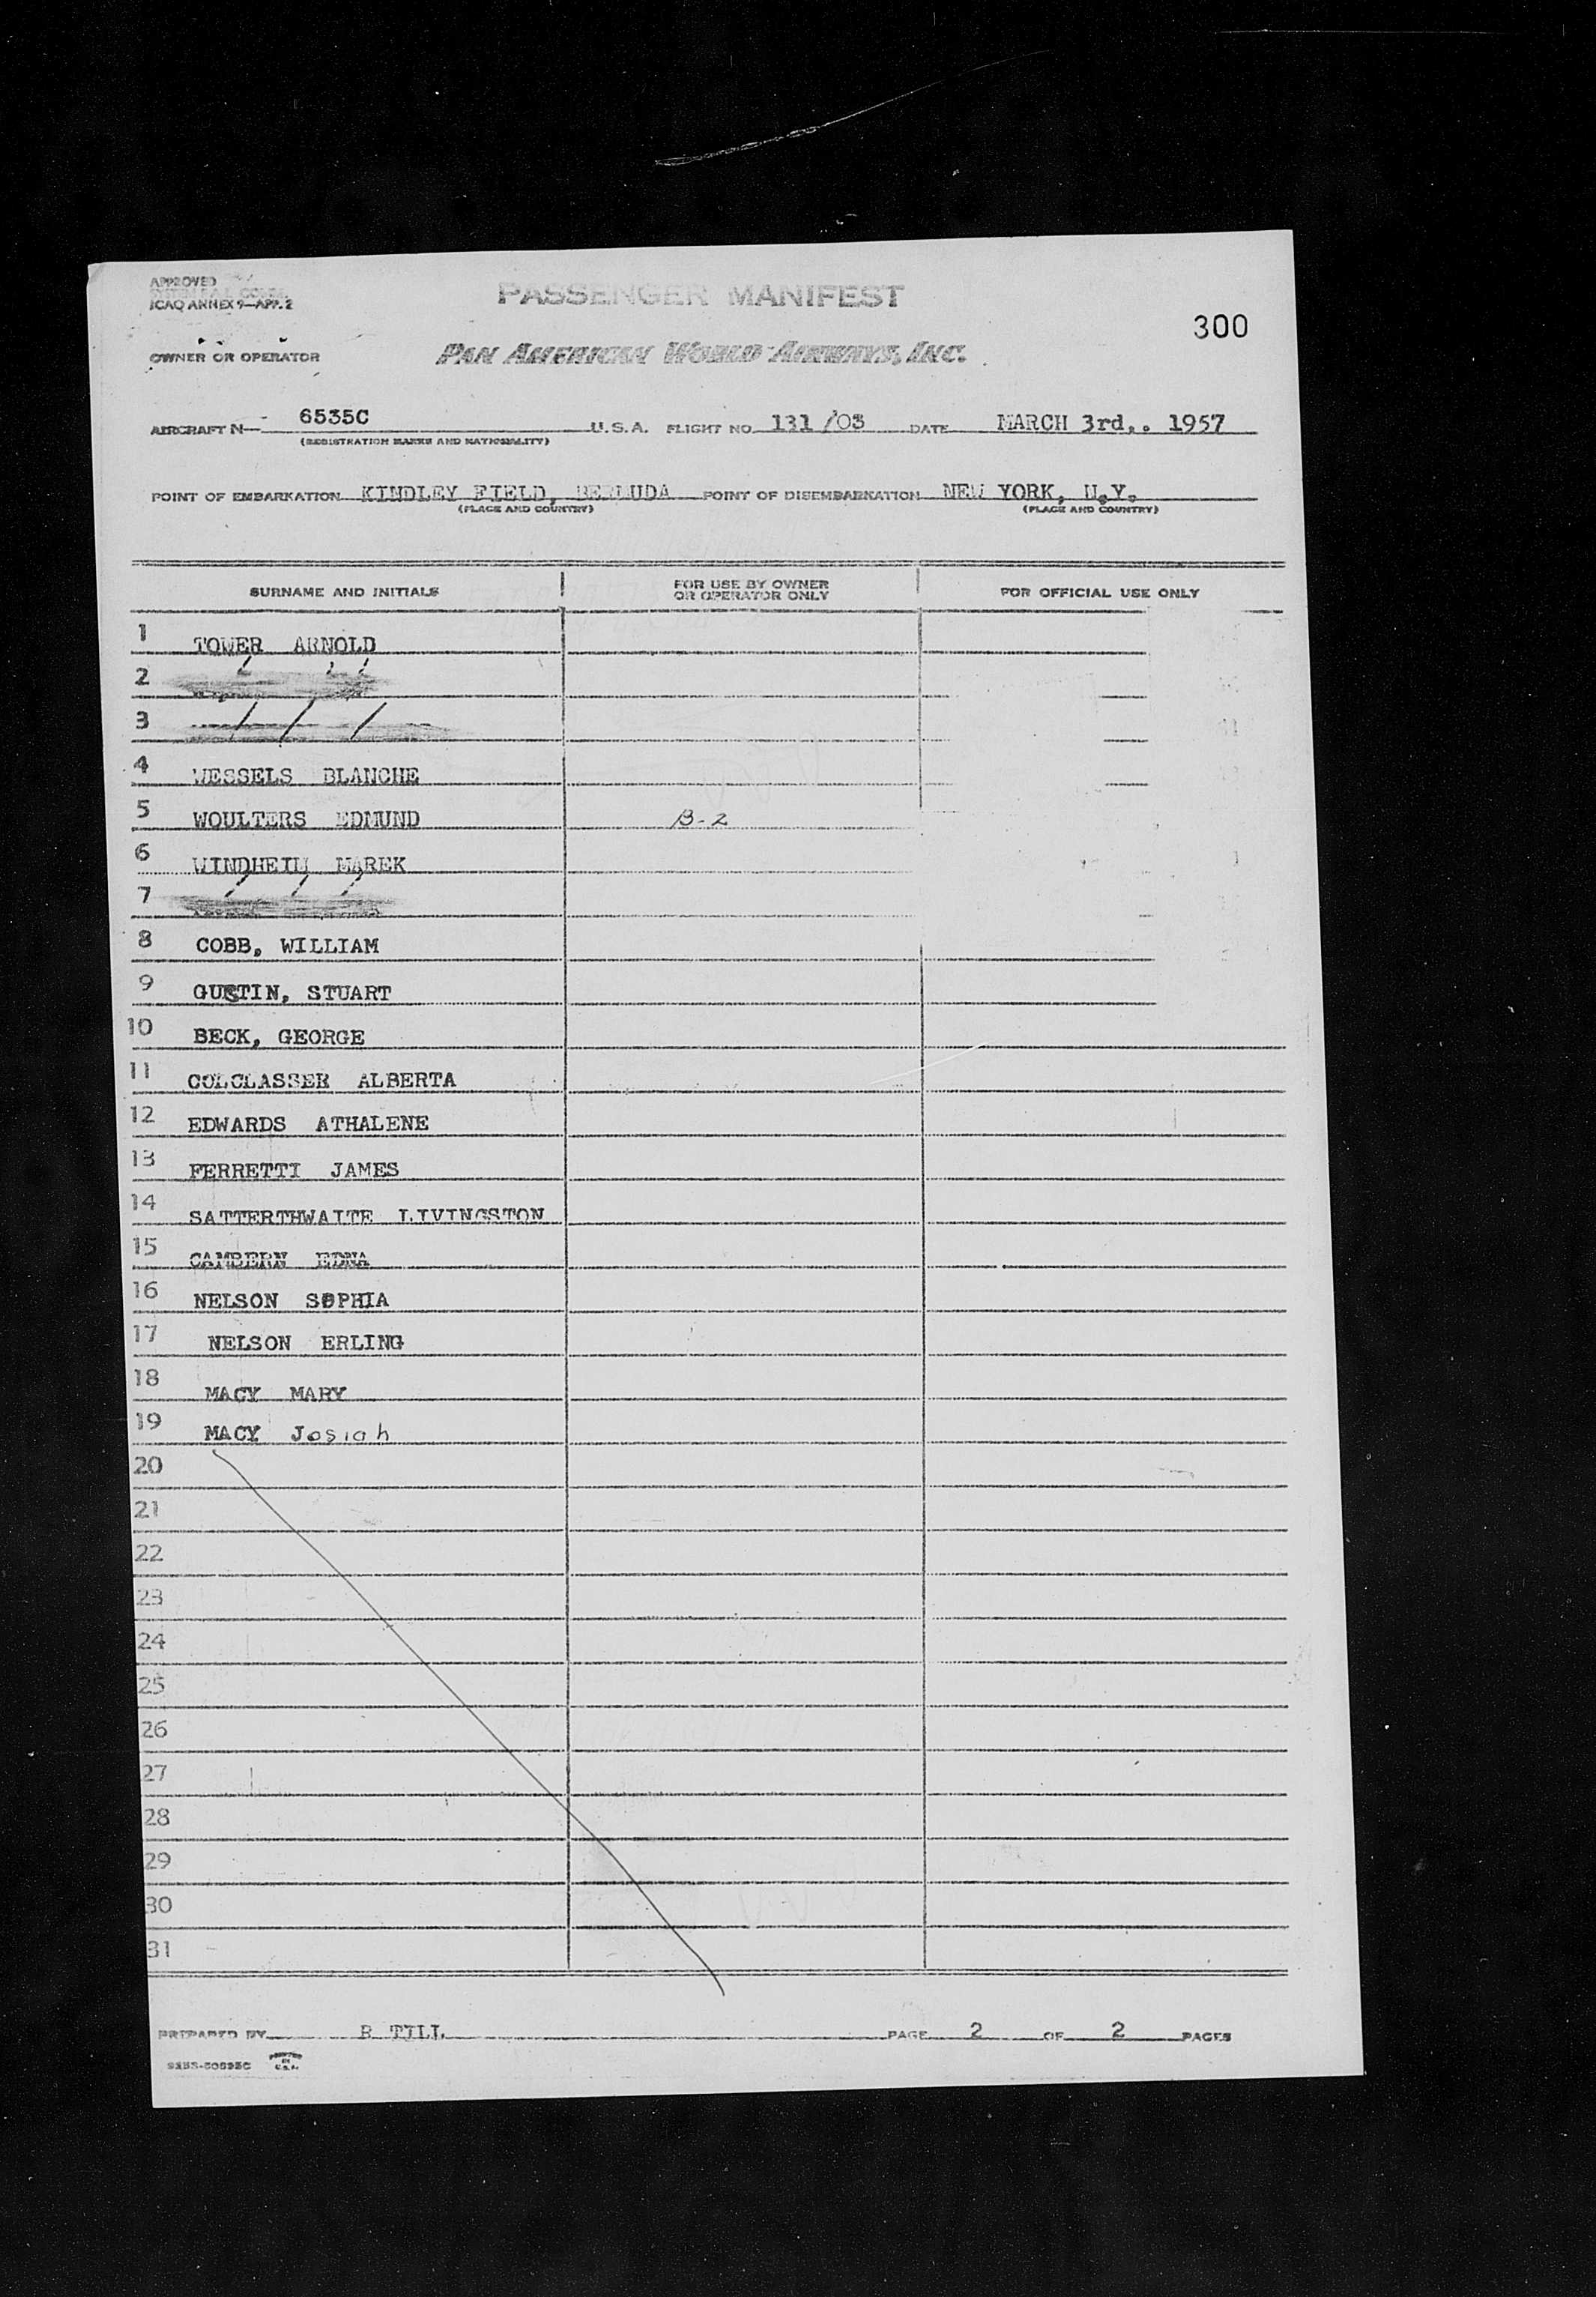 APPROVED
ICAO ANNEX 9—APP. 2
PASSENGER MANIFEST
300
OWNER OR OPERATOR
PAN AMERICAN WORLD AIRWAYS, INC.
AIRCRAFT N— 6535C U.S.A. FLIGHT NO. 131/03 DATE MARCH 3rd,. 1957
(REGISTRATION MARKS AND NATIONALITY)
POINT OF EMBARKATION KINDLEY FIELD, BERMUDA POINT OF DISEMBARKATION NEW YORK, N.Y.
(PLACE AND COUNTRY) (PLACE AND COUNTRY)
SURNAME AND INITIALS FOR USE BY OWNER OR OPERATOR ONLY FOR OFFICIAL USE ONLY
1 TOWER ARNOLD
2
3
4 WESSELS BLANCHE
5 WOULTERS EDMUND B-2
6 WINDHEIM MAREK
7
8 COBB, WILLIAM
9 GUSTIN, STUART
10 BECK, GEORGE
11 COLCLASSER ALBERTA
12 EDWARDS ATHALENE
13 FERRETTI JAMES
14 SATTERTHWAITE LIVINGSTON
15 CAMBERN EDNA
16 NELSON SOPHIA
17 NELSON ERLING
18 MACY MARY
19 MACY Josiah
20
21
22
23
24
25
26
27
28
29
30
31
PREPARED BY B TILL PAGE 2 OF 2 PAGES
PRINTED IN U.S.A.